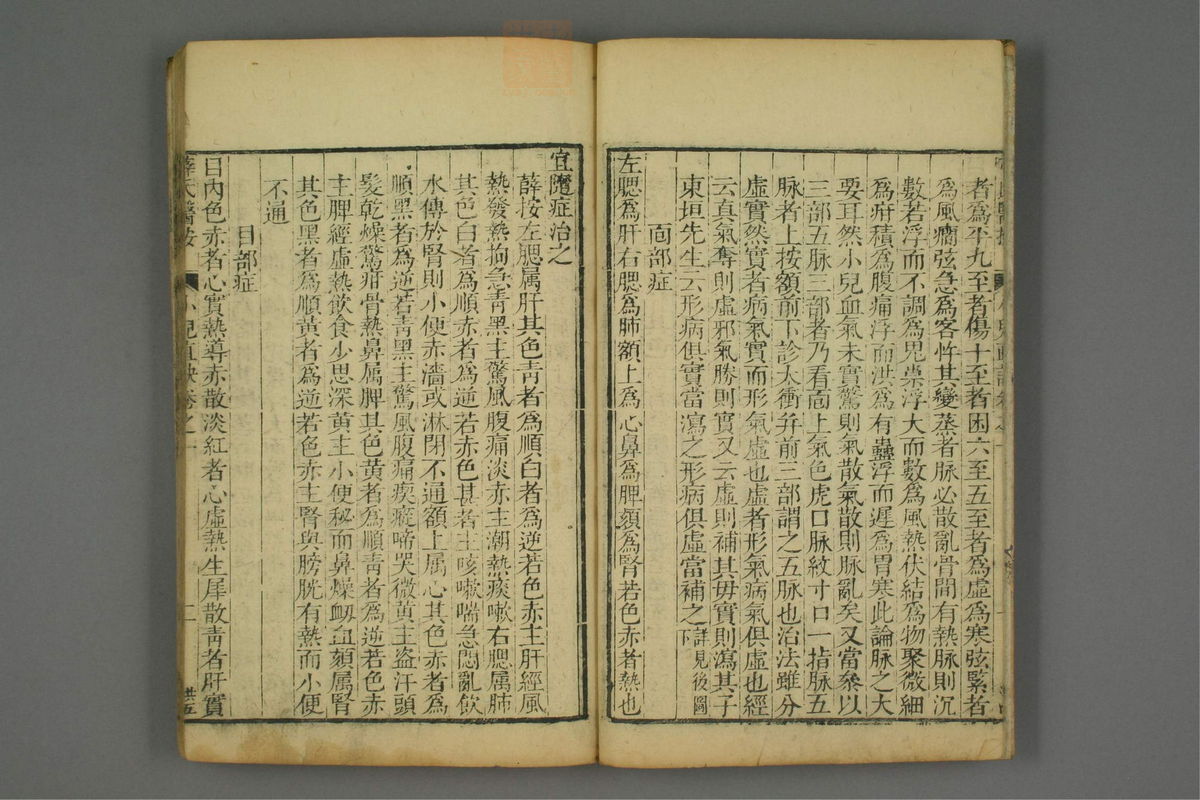 者為平九至者傷十至者困六至五至者為虛為寒弦緊者
為風癎弦急為客忤其變蒸者脉必散亂骨間有熱脉則沉
數若浮而不調為鬼祟浮大而數為風熱伏結為物聚微細
為疳積為腹痛浮而洪為有蠱浮而遲為胃寒此論脉之大
要耳然小兒血氣未實驚則氣散氣散則脉亂矣又當參以
三部五脉三部者乃看面上氣色虎口脉紋寸口一指脉五
脉者上按額前下診太衝并前三部謂之五脉也治法雖分
虛實然實者病氣實而形氣虛也虛者形氣病氣俱虛也經
云真氣奪則虛邪氣勝則實又云虛則補其母實則瀉其子
東垣先生云形病俱實當瀉之形病俱虛當補之詳見後圖下
面部症
左腮為肝右腮為肺額上為心鼻為脾頦為腎若色赤者熱也
宜隨症治之
薛按左腮属肝其色青者為順白者為逆若色赤主肝經風
熱發熱拘急青黑主驚風腹痛淡赤主潮熱痰嗽右腮属肺
其色白者為順赤者為逆若赤色甚者主咳嗽喘急悶亂飲
水傳於腎則小便赤濇或淋閉不通額上属心其色赤者為
順黑者為逆若青黑主驚風腹痛瘈瘲啼哭微黄主盗汗頭
髮乾燥驚疳骨熱鼻属脾其色黄者為順青者為逆若色赤
主脾經虛熱飲食少思深黄主小便秘而鼻燥衂血頦属腎
其色黑者為順黄者為逆若色赤主腎與膀胱有熱而小便
不通
目部症
目內色赤者心實熱導赤散淡紅者心虛熱生犀散青者肝實
薛氏醫按
小兒直訣卷之一
二